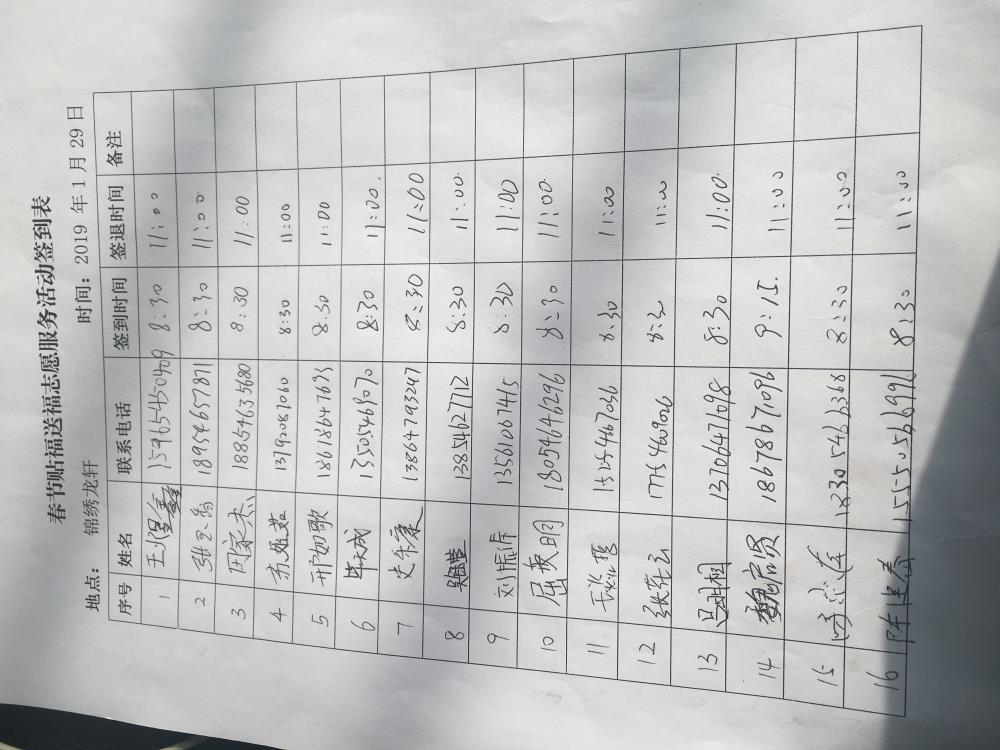 春节贴福送福志愿服务活动签到表
地点： 锦绣龙轩 时间：2019 年 1 月 29 日
序号 姓名 联系电话 签到时间 签退时间 备注
1 鑫 15965450409 8:30 11:00
2 18954657871 8:30 11:00
3 田家杰 18854635680 8:30 11:00
4 苏茹茹 8:30 11:00
5 邢如歌 18618647693 8:30 11:00
6 毕天成 13505469070 8:30 11:00.
7 史乐康 13864793247 8:30 11:00
8 13854627712 8:30 11:00.
9 刘振作 13561067415 8:30 11:00
10 屈英明 18054646296 8:30 11:00.
11 15254467036 8:30 11:00
12 8:30 11:00
13 13706471098 8:30 11:00.
14 魏富贤 18678671096 9:15. 11:00
15 8:30 11:00
16 陈建春 8:30 11:00